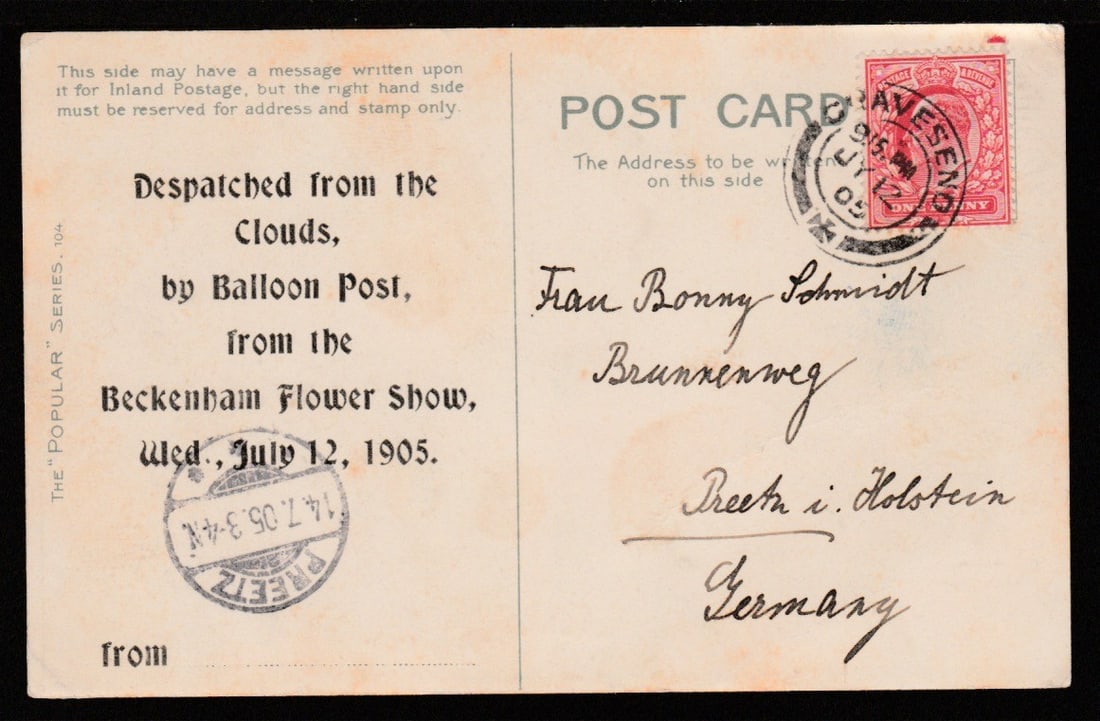 This side may have a message written upon
it for Inland Postage, but the right hand side
must be reserved for address and stamp only.
Despatched from the
Clouds,
by Balloon Post,
from the
Beckenham Flower Show,
Wed., July 12, 1905.
from
THE "POPULAR" SERIES. 104
14.7.05.3-4N
PREETZ
POST CARD
The Address to be written
on this side
POSTAGE & REVENUE
ONE PENNY
GRAVESEND
915 PM
JY 12
05
Frau Bonny Schmidt
Brunnenweg
Preetz i. Holstein
Germany